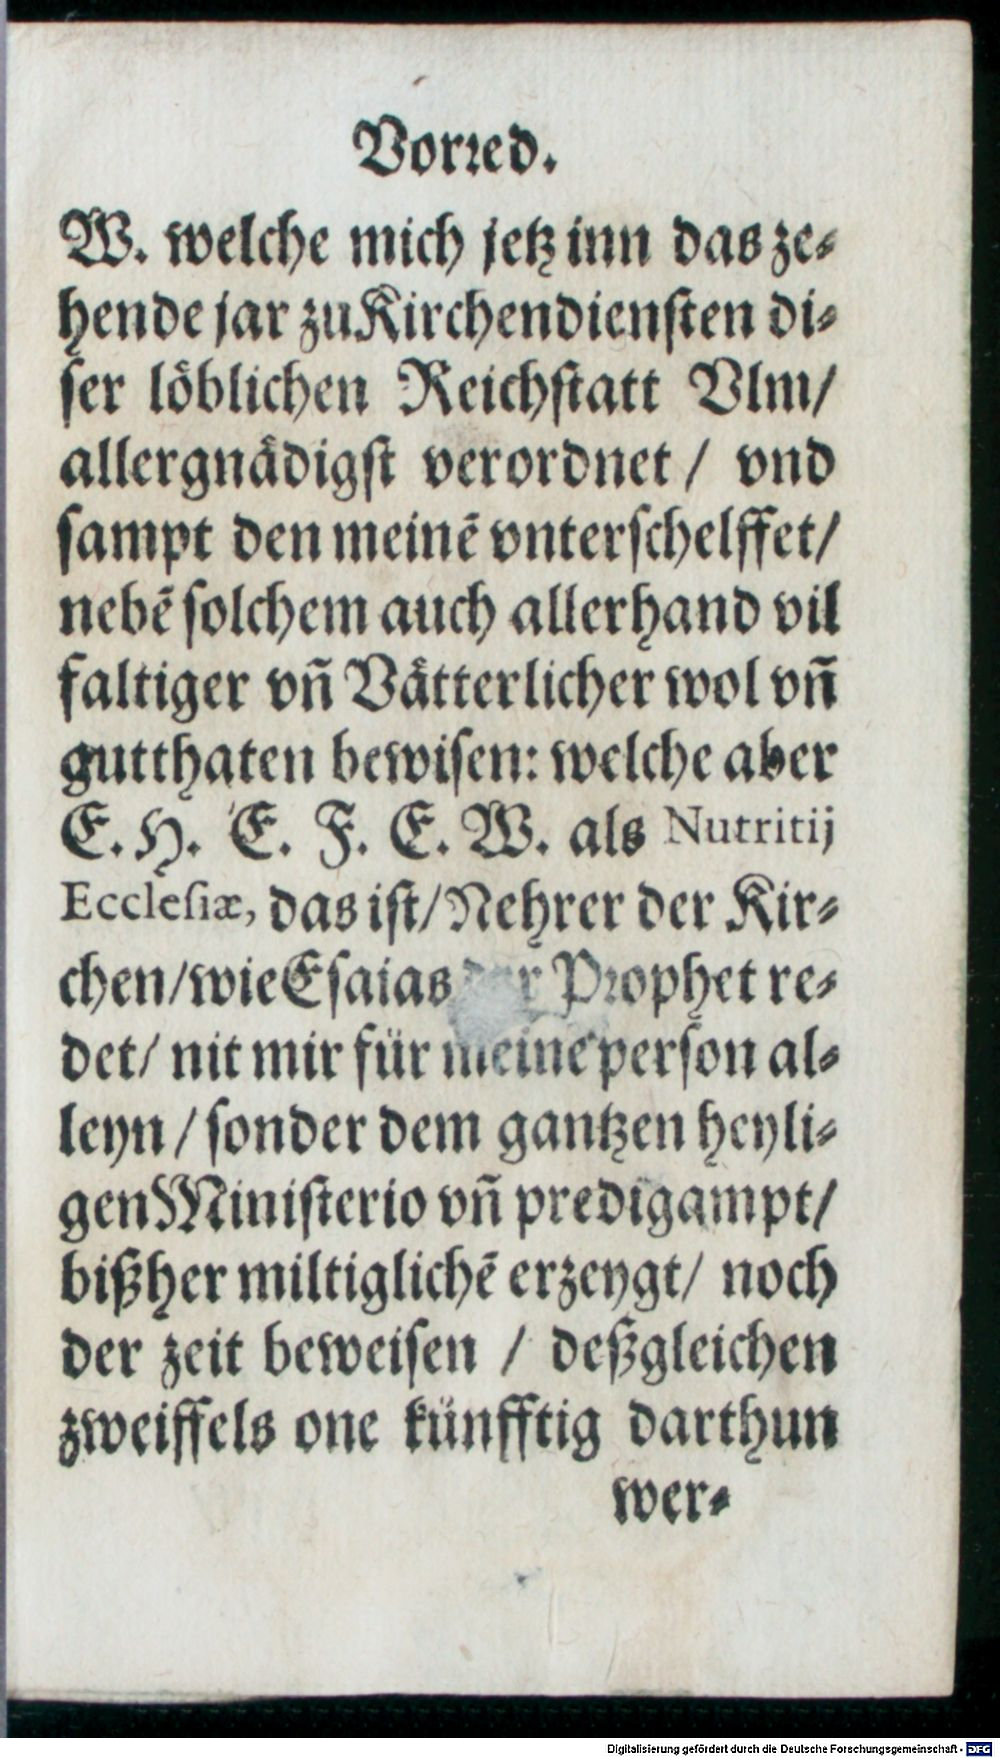 Vorred.
W. welche mich jetz inn das ze⸗
hende jar zu Kirchendiensten di⸗
ser löblichen Reichstatt Vlm/
allergnädigst verordnet / vnd
sampt den meinē vnterschelffet/
nebē solchem auch allerhand vil
faltiger vn̄ Vätterlicher wol vn̄
gutthaten bewisen: welche aber
E. H. E. F. E. W. als Nutritij
Ecclesiæ, das ist/ Nehrer der Kir⸗
chen/ wie Esaias der Prophet re⸗
det/ nit mir für meine person al⸗
leyn / sonder dem gantzen heyli⸗
gen Ministerio vn̄ predigampt/
bißher miltiglichē erzeygt/ noch
der zeit beweisen / deßgleichen
zweiffels one künfftig darthun
wer⸗
Digitalisierung gefördert durch die Deutsche Forschungsgemeinschaft - DFG